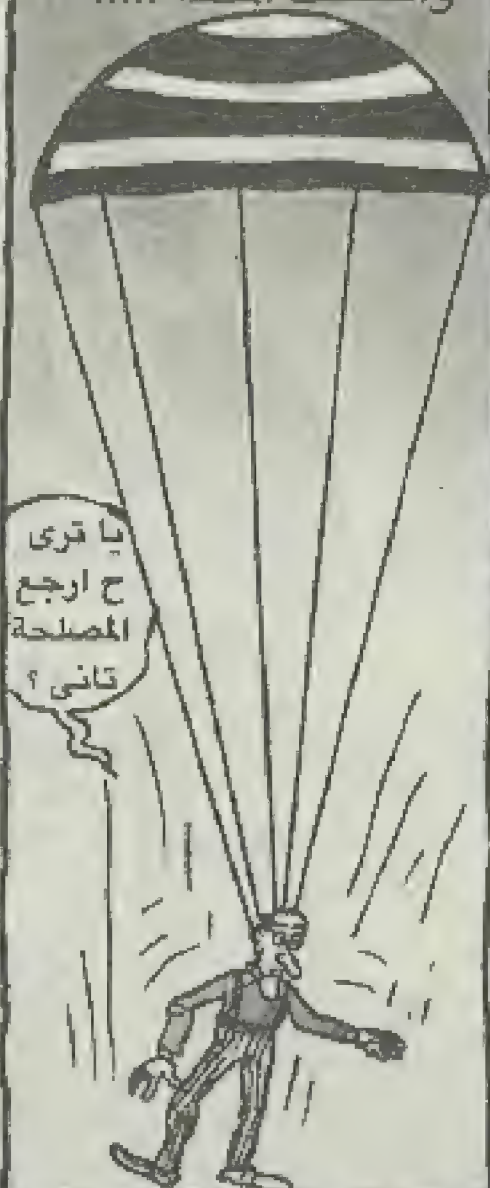 يا ترى
ح ارجع
المصلحة
تانى ؟